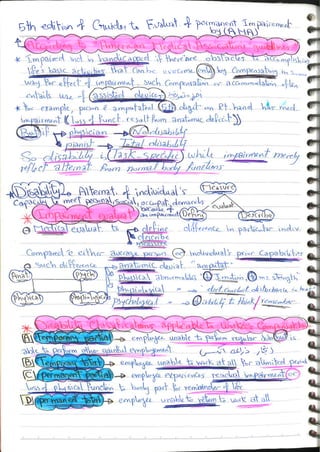 5th edition of Guides to Evaluat of permanent Impairment
by (AMA)
According to American Medical Association guidelines
* Impaired not is handicapped if there are obstacles to accomplish
life's basic activities that can be overcome only by compensating in some
way the effect of impairment. such Compensation or accommodation often
entails use of assisted device
* for example, person é amputated 5th digit on Rt. hand has med.
impairment (loss of funct result from anatomic deficit)
But if → physician → No disability
pianist → Total disability
So disability is Task specific while impairment merely
reflect alternat from normal body functions
* Disability → Alternat. of individual's
Capacity to meet personal, social, occupat. demands
because of
an impairment
Measure
evaluat
Define
Describe
* Impairment evaluat
Medical evaluat. to → define
describe
measure
difference in particular indiv.
Compared é either average person or individual's prior capabilities
Such differences → anatomic deviat. "amputat"
Anat
Psych
Physical
Physiological
Physical abnormalities
ms strength
physiological
Psychological → ability to think / remember
* Disability Classifications applicable to Workers Compensation
A) Temporary partial → employee unable to perform regular Job but is
able to perform other gainful employment
B) Temporary total → employee unable to work at all for limited period
C) permanent partial → employee experiences residual impairment or
loss of physical function to body part for remainder of life
D) permanent total → employee unable to return to work at all